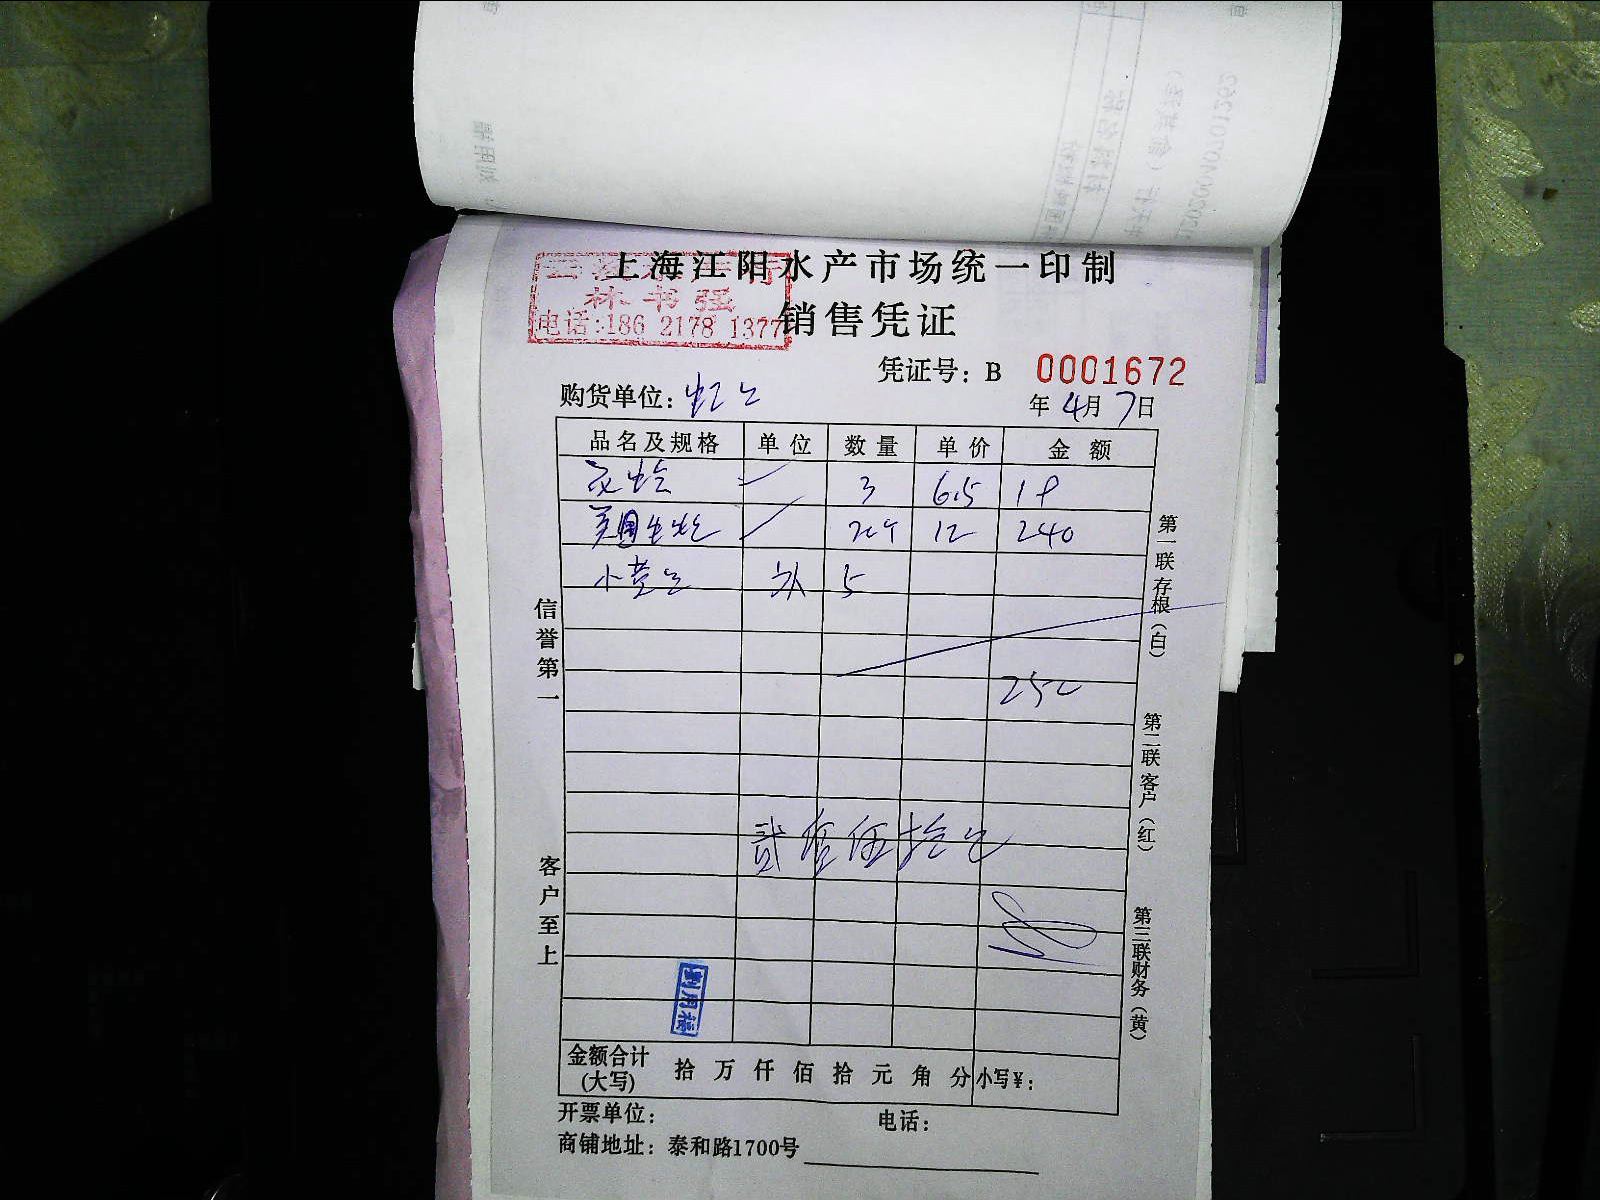 上海江阳水产市场统一印制
林书强
电话:186 2178 1377
销售凭证
凭证号: B 0001672
购货单位: 虹
年 4月 7日
品名及规格 单位 数量 单价 金额
花蛤 3 6.5 18
美国生蚝 20个 12 240
小 5
250
贰佰伍拾元
信誉第一
客户至上
第一联存根(白)
第二联客户(红)
第三联财务(黄)
金额合计(大写) 拾 万 仟 佰 拾 元 角 分 小写¥:
开票单位: 电话:
商铺地址: 泰和路1700号